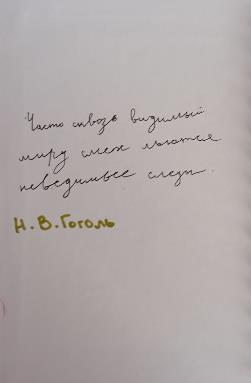 Часто сквозь видимый
миру смех льются
невидимые слезы.
Н.В.Гоголь